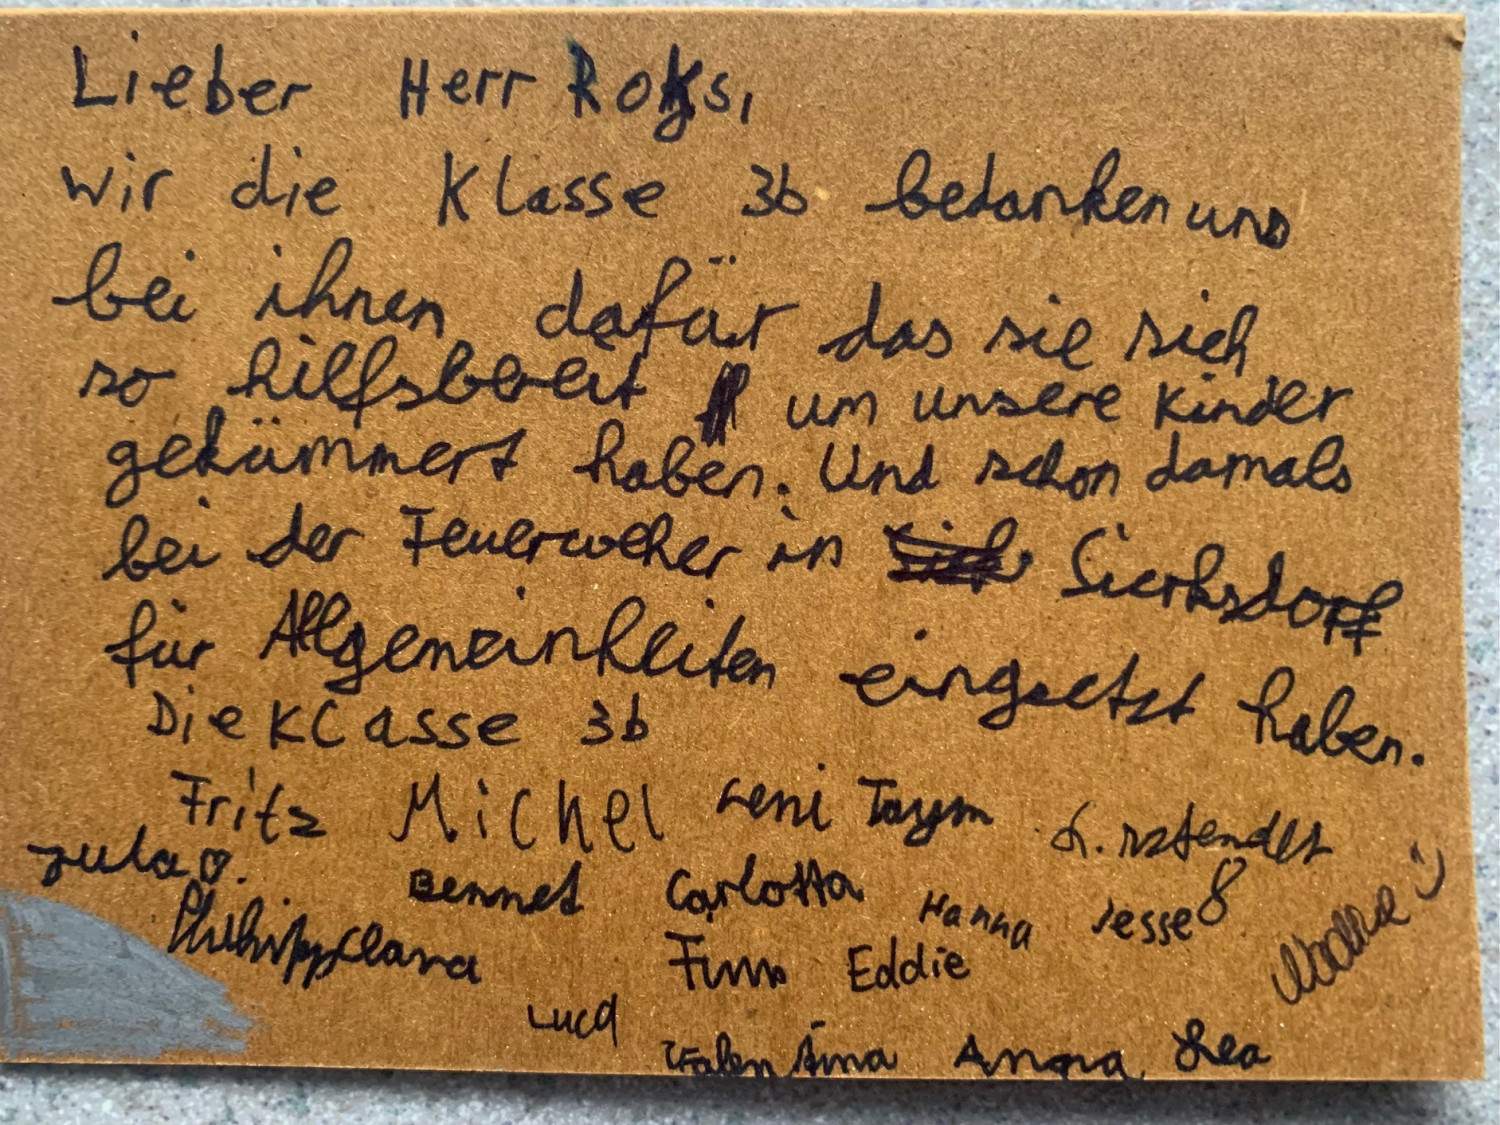 Lieber Herr Roks,
wir die Klasse 3b bedanken uns
bei ihnen dafür das sie sich
so hilfsbereit um unsere Kinder
gekümmert haben. Und schon damals
bei der Feuerweher in Sierksdorf
für Allgemeinheiten eingsetzt haben.
Die Klasse 3b
Fritz Michel Leni Taym
Bennet Carlotta Hanna Jesse
Philipp Clara Finn Eddie
Luca
Valentina Anna Lea